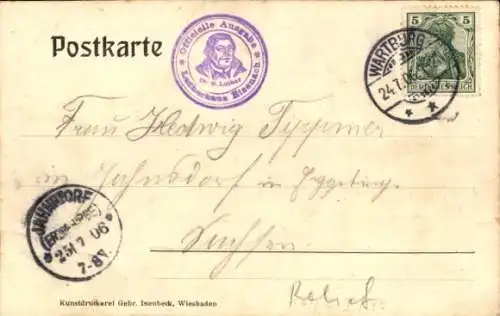 Postkarte
Officielle Ausgabe
Dr. M. Luther
Lutherhaus Eisenach
5 5
WARTBURG
24.7.06
DEUTSCHES REICH
Frau Hedwig Tippmer
in Jahnsdorf in Erzgebirg
Sachsen
JAHNSDORF
(ERZGEBIRGE)
25/7 06
7-8V
Kunstdruckerei Gebr. Isenbeck, Wiesbaden